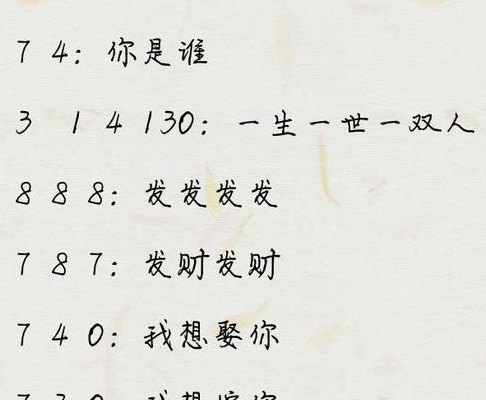 7 4：你是谁
3 1 4 130：一生一世一双人
8 8 8：发发发发
7 8 7：发财发财
7 4 0：我想娶你